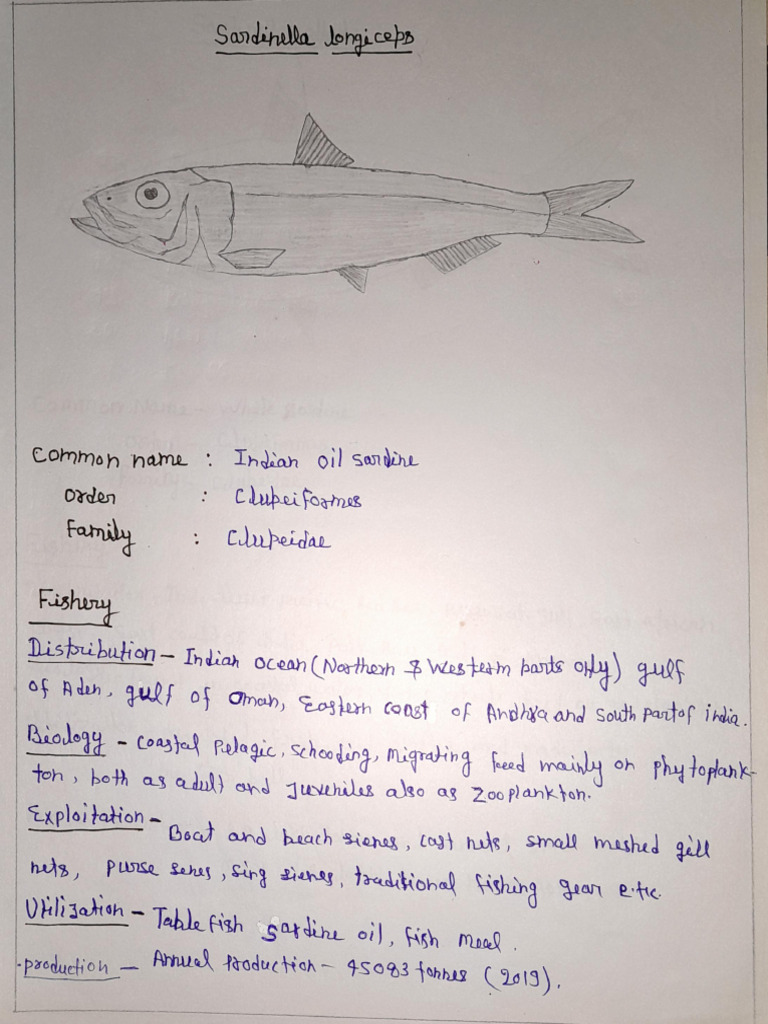 Sardinella longiceps
Common name : Indian oil sardine
Order : Clupeiformes
Family : Clupeidae
Fishery
Distribution - Indian ocean (Northern & Western parts only) gulf
of Aden, gulf of Oman, Eastern coast of Andhra and south part of india.
Biology - Coastal Pelagic, schooling, Migrating feed mainly on phytoplank-
ton, both as adult and Juveniles also as Zooplankton.
Exploitation - Boat and beach sienes, cast nets, small meshed gill
nets, purse senes, sing sienes, traditional fishing gear etc.
Utilization - Table fish sardine oil, fish meal.
production - Annual Production - 45083 tonnes (2019).